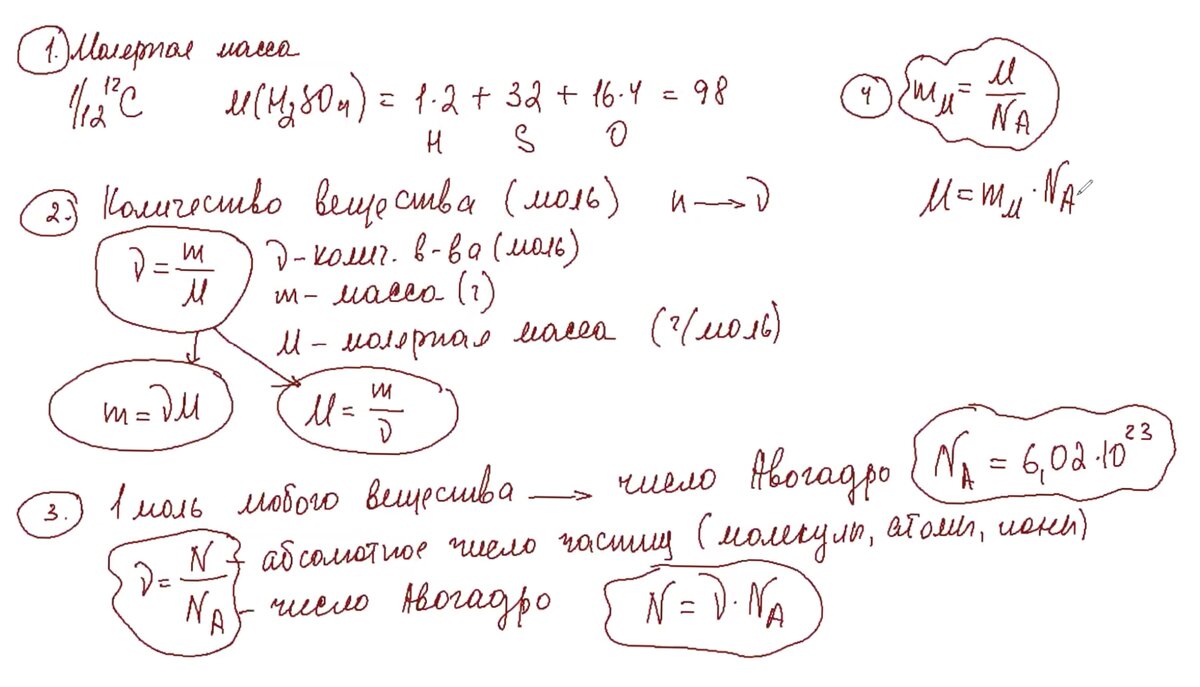 1. Молярная масса
1/12 ¹²C M(H₂SO₄) = 1·2 + 32 + 16·4 = 98
H S O
2. Количество вещества (моль) n → ν
ν = m/M ν – колич. в-ва (моль)
m – масса (г)
M – молярная масса (г/моль)
m = νM M = m/ν
3. 1 моль любого вещества → число Авогадро N_A = 6,02·10²³
ν = N/N_A N – абсолютное число частиц (молекулы, атомы, ионы)
– число Авогадро N = ν·N_A
4 m_м = M/N_A
M = m_м · N_A